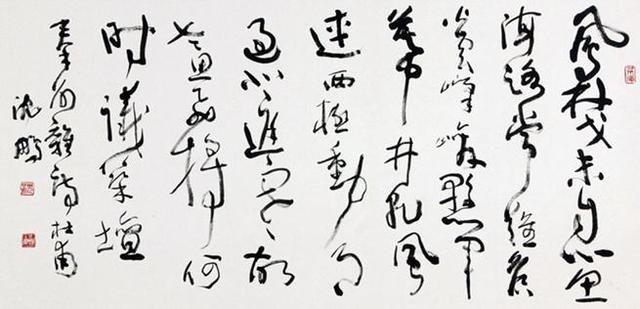 鳳林戈未息魚
海路常難候
火雲峰峻懸軍
幕井乾風
連西極動月
過北庭寒故
老思飛將何
時議築壇
秦州雜詩杜甫
沈鵬